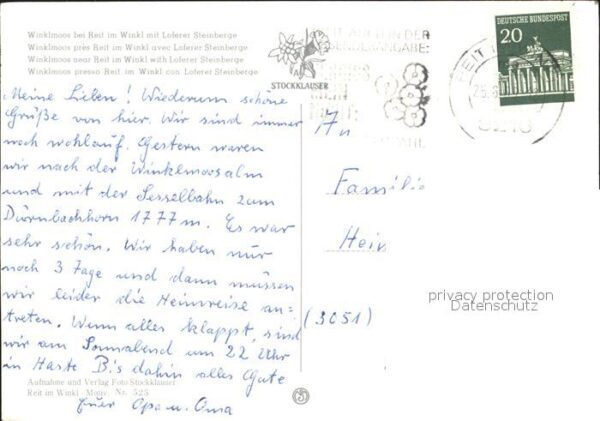 Winklmoos bei Reit im Winkl mit Loferer Steinberge
Winklmoos près Reit im Winkl avec Loferer Steinberge
Winklmoos near Reit im Winkl with Loferer Steinberge
Winklmoos presso Reit im Winkl con Loferer Steinberge
STOCKKLAUSER
DEUTSCHE BUNDESPOST
20
Meine Lieben! Wiederum schöne
Grüße von hier. Wir sind immer
noch wohlauf. Gestern waren
wir nach der Winklmoosalm
und mit der Sesselbahn zum
Dürnbachhorn 1777 m. Es war
sehr schön. Wir haben nur
noch 3 Tage und dann müssen
wir leider die Heimreise an-
treten. Wenn alles klappt, sind
wir am Sonnabend um 22 Uhr
in Haste Bis dahin alles Gute
Euer Opa u. Oma
An
Familie
Hein
(3051)
privacy protection
Datenschutz
Aufnahme und Verlag Foto Stockklauser
Reit im Winkl Motiv. Nr. 525